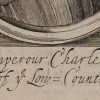 mperour Charle
of yᵉ Low=Count